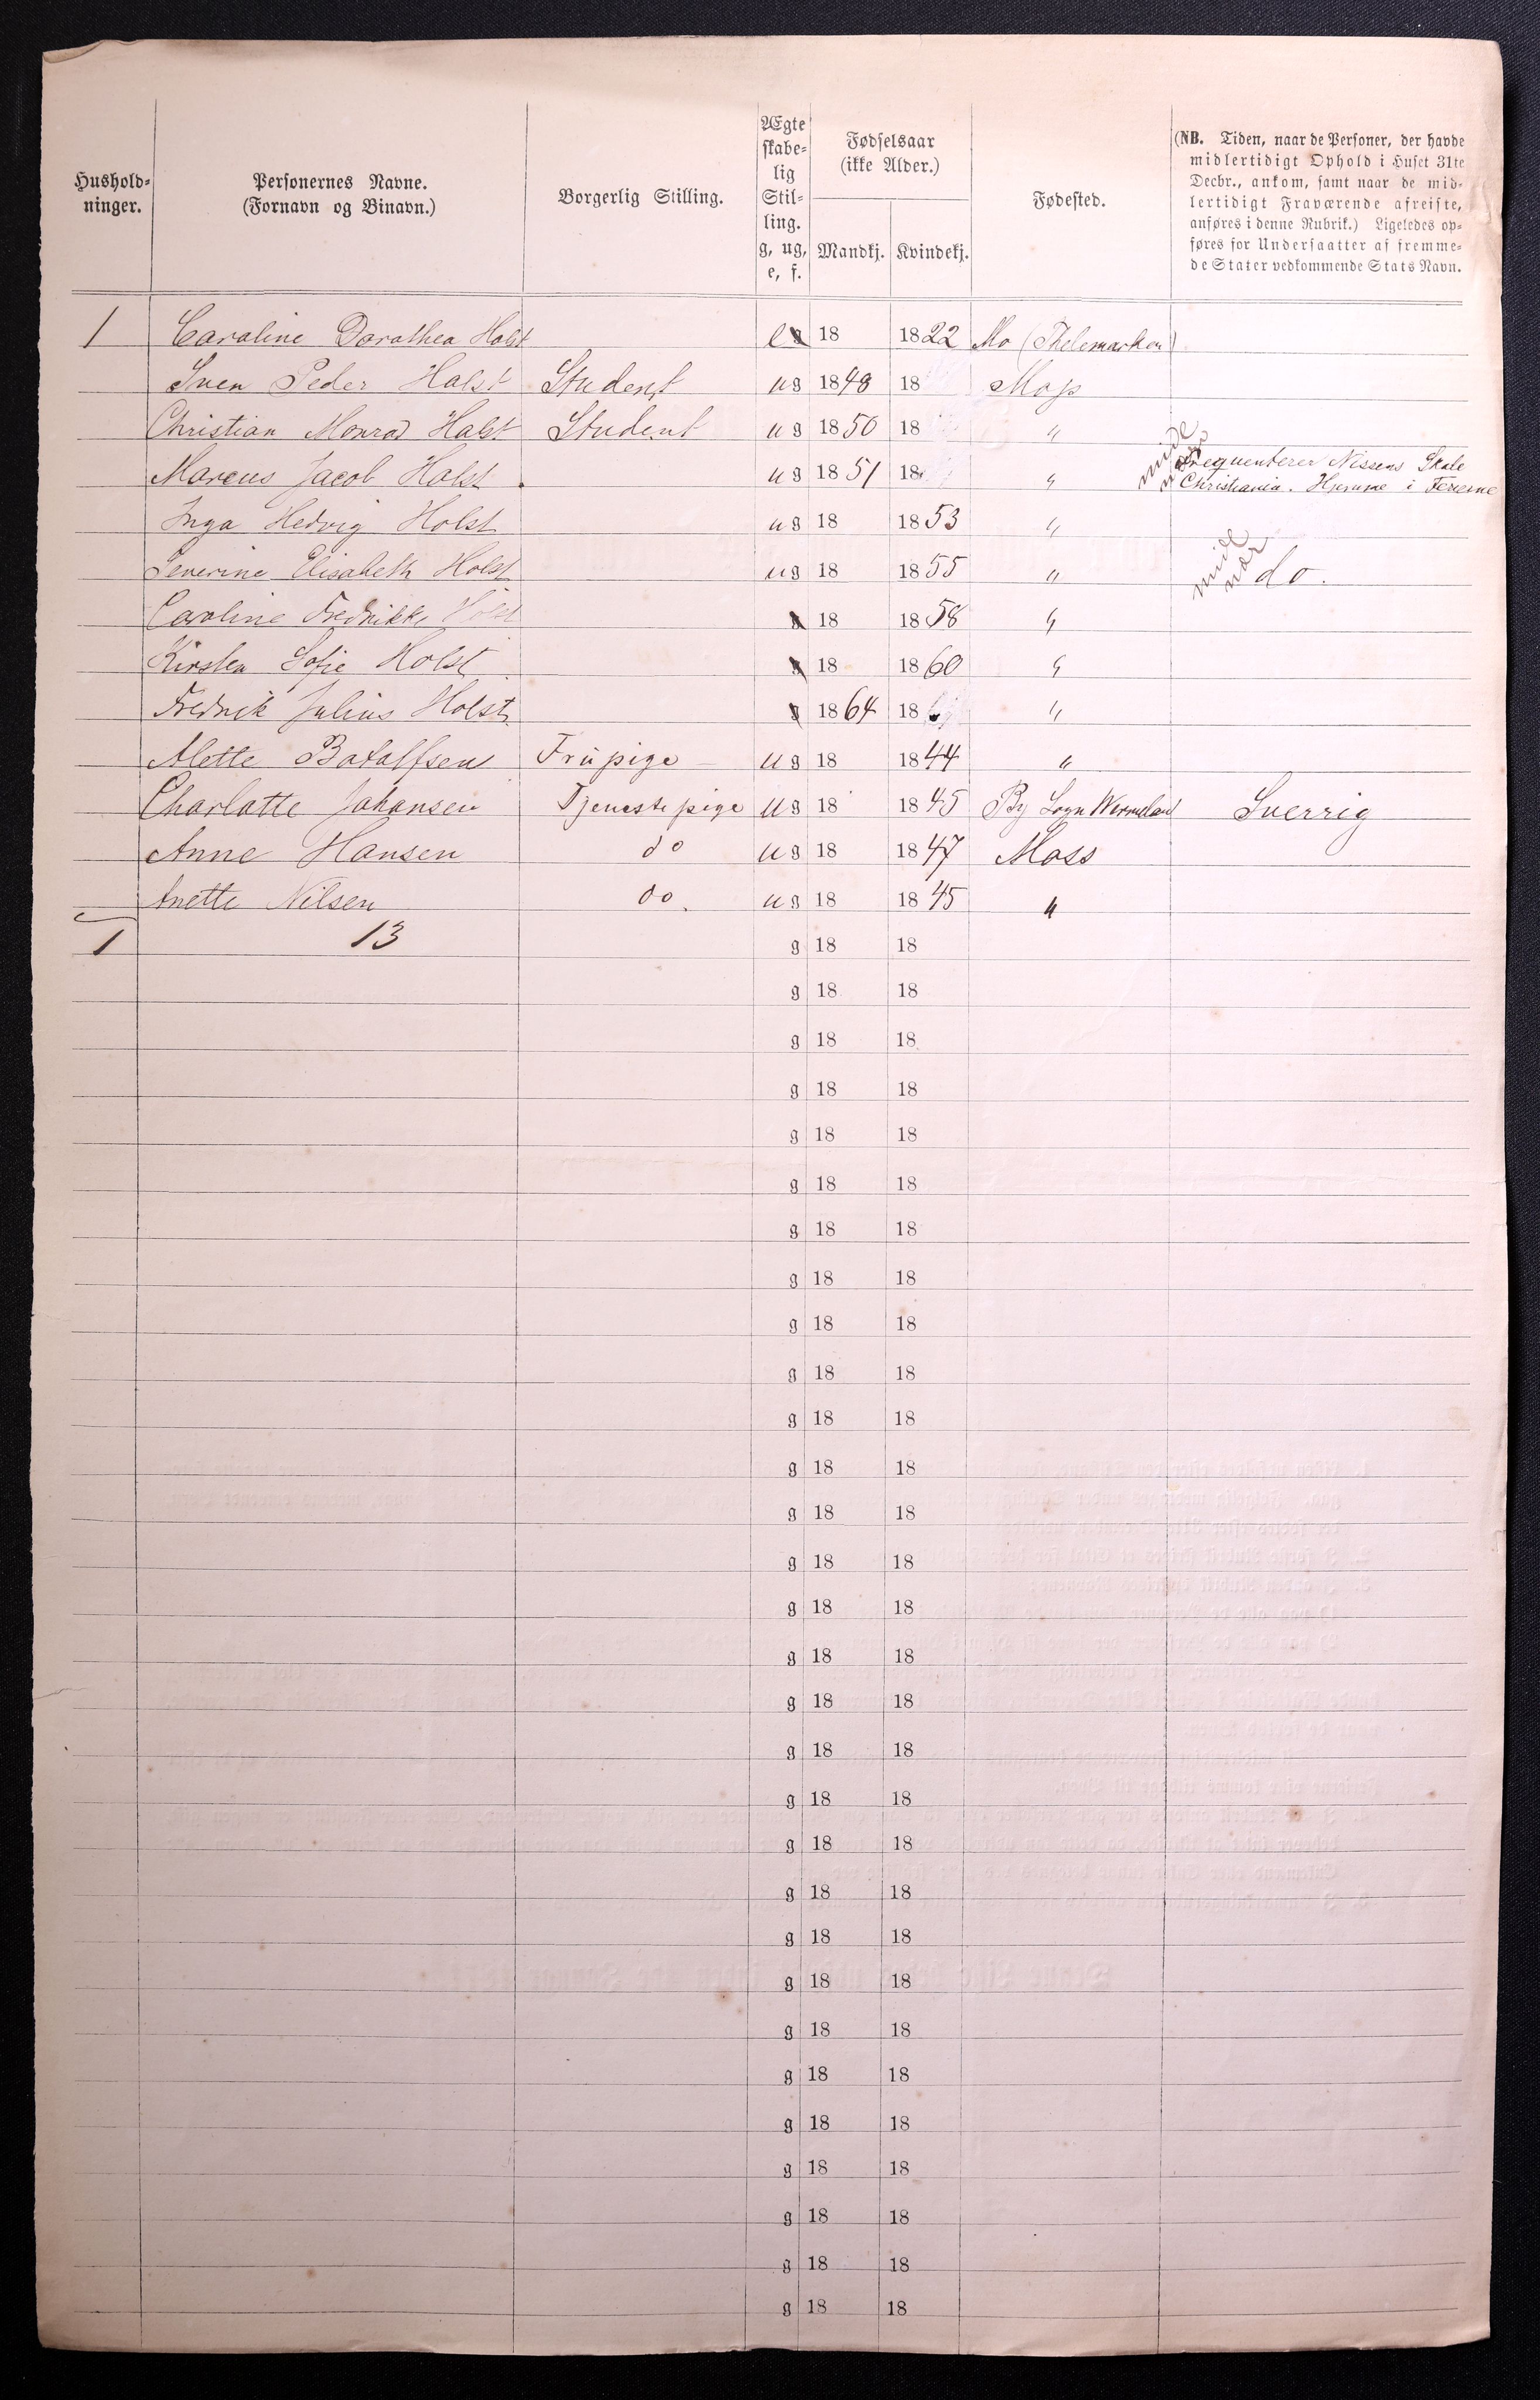 Hushold-
ninger.
Personernes Navne.
(Fornavn og Binavn.)
Borgerlig Stilling.
Ægte
skabe-
lig
Stil-
ling.
g, ug,
e, f.
Fødselsaar
(ikke Alder.)
Mandkj. Kvindekj.
Fødested.
(NB. Tiden, naar de Personer, der havde
midlertidigt Ophold i Huset 31te
Decbr., ankom, samt naar de mid-
lertidigt Fraværende afreiste,
anføres i denne Rubrik.) Ligeledes op-
føres for Undersaatter af fremme-
de Stater vedkommende Stats Navn.
1 Caroline Dorothea Holst e 18 1822 Mo (Thelemarken)
Sven Peder Holst Student ug 1848 18 Moss
Christian Monrad Holst Student ug 1850 18 "
Marcus Jacob Holst ug 1851 18 " Frequenterer Nissens Skole
Christiania. Hjemme i Ferierne
Inga Hedvig Holst ug 18 1853 "
Severine Elisabeth Holst ug 18 1855 " do.
Caroline Fredrikke Holst g 18 1858 "
Kirsten Sofie Holst g 18 1860 "
Fredrik Julius Holst g 1864 18 "
Alette Botolfsen Frøpige ug 18 1844 "
Charlotte Johansen Tjenestepige ug 18 1845 By Sogn Wermeland Sverrig
Anne Hansen do ug 18 1847 Moss
Anette Nilsen do. ug 18 1845 "
1 13 g 18 18
g 18 18
g 18 18
g 18 18
g 18 18
g 18 18
g 18 18
g 18 18
g 18 18
g 18 18
g 18 18
g 18 18
g 18 18
g 18 18
g 18 18
g 18 18
g 18 18
g 18 18
g 18 18
g 18 18
g 18 18
g 18 18
g 18 18
g 18 18
g 18 18
g 18 18
g 18 18
g 18 18
g 18 18
g 18 18